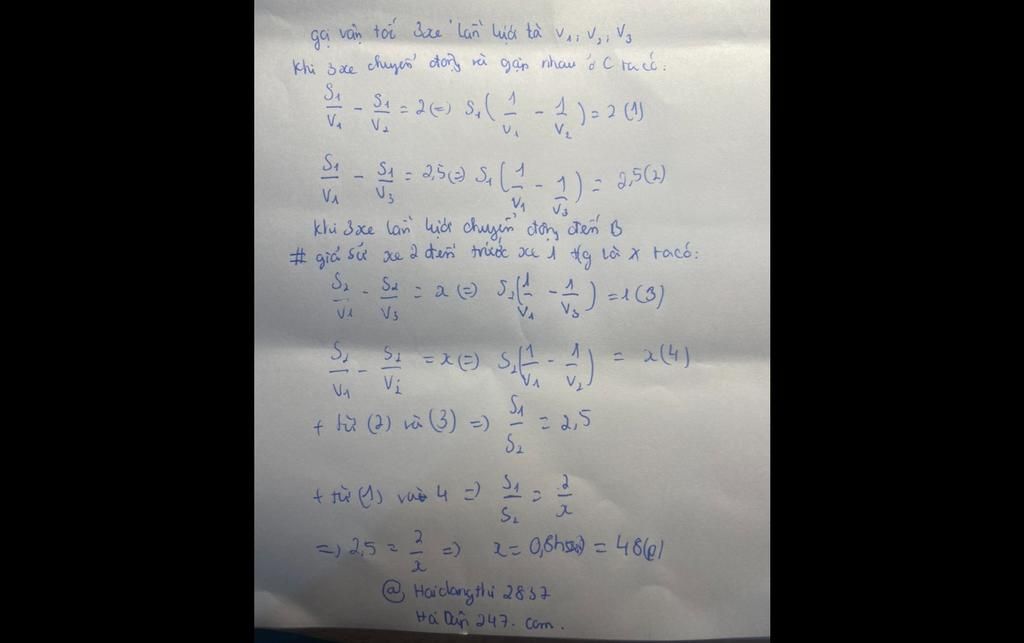 gọi vận tốc 3xe lần lượt là V₁, V₂, V₃
Khi 3xe chuyển động và gặp nhau ở C ta có:
S₁/V₁ - S₁/V₂ = 2 (=) S₁(1/V₁ - 1/V₂) = 2 (1)
S₁/V₁ - S₁/V₃ = 2,5 (=) S₁(1/V₁ - 1/V₃) = 2,5 (2)
Khi 3xe lần lượt chuyển động đến B
# giả sử xe 2 đến trước xe 1 tg là x ta có:
S₂/V₁ - S₂/V₃ = x (=) S₂(1/V₁ - 1/V₃) = 1 (3)
S₂/V₁ - S₂/V₂ = x (=) S₂(1/V₁ - 1/V₂) = x (4)
+ từ (2) và (3) =) S₁/S₂ = 2,5
+ từ (1) và 4 =) S₁/S₂ = 2/x
=) 2,5 = 2/x =) x = 0,8h = 48(p)
@ Haidangthi 2837
Hỏi Đáp 247. com.